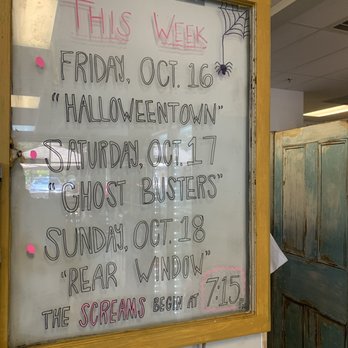 THIS WEEK
FRIDAY, OCT. 16
"HALLOWEENTOWN"
SATURDAY, OCT. 17
"GHOST BUSTERS"
SUNDAY, OCT. 18
"REAR WINDOW"
THE SCREAMS BEGIN AT 7:15